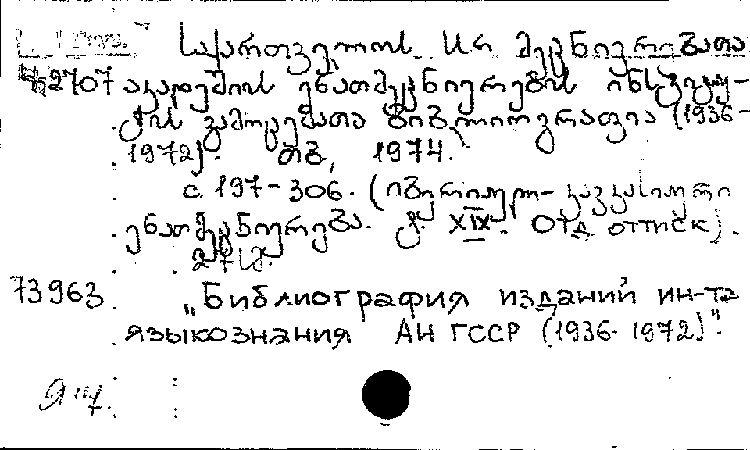 საქართველოს სსრ მეცნიერებათა
2707 აკადემიის ენათმეცნიერების ინსტიტუ-
ტის გამოცემათა ბიბლიოგრაფია (1936-
1972). თბ, 1974.
с. 197-306. (იბერიულ-კავკასიური
ენათმეცნიერება. ტ. XIX. Отд. оттиск).
73963. „Библиография изданий ин-та
языкознания АН ГССР (1936-1972)".